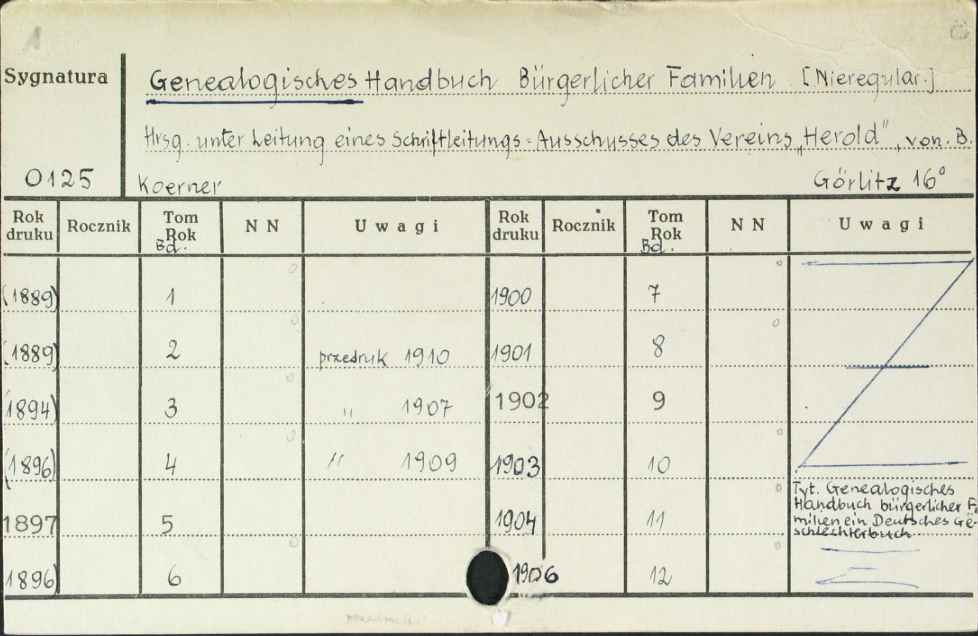 Sygnatura
Genealogisches Handbuch Bürgerlicher Familien [Nieregular.]
Hrsg. unter Leitung eines Schriftleitungs=Ausschusses des Vereins „Herold", von. B.
0125 Koerner Görlitz 16°
Rok druku Rocznik Tom Rok Bd. N N Uwagi Rok druku Rocznik Tom Rok Bd. N N Uwagi
(1889) 1 1900 7
(1889) 2 przedruk 1910 1901 8
1894) 3 " 1907 1902 9
(1896) 4 " 1909 1903 10
1897 5 1904 11 Tyt. Genealogisches
Handbuch bürgerlicher Fa
milien ein Deutsches Ge-
schlechterbuch
1896) 6 1906 12